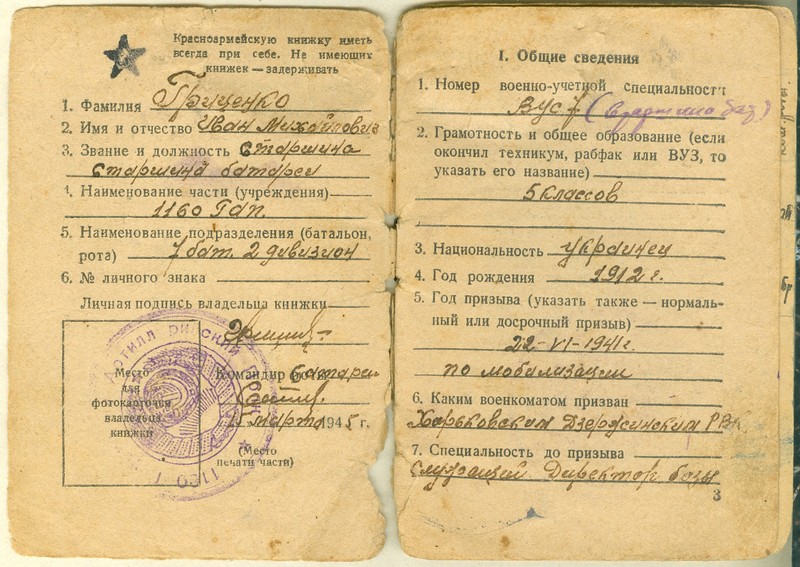 Красноармейскую книжку иметь
всегда при себе. Не имеющих
книжек — задерживать
1. Фамилия Гриценко
2. Имя и отчество Иван Михайлович
3. Звание и должность Старшина
старшина батареи
4. Наименование части (учреждения)
1160 Гап.
5. Наименование подразделения (батальон,
рота) 7 бат. 2 дивизион
6. № личного знака
Личная подпись владельца книжки
Место
для
фотокарточки
владельца
книжки
Командир роты батареи
марта 1945 г.
(Место
печати части)
1160
I. Общие сведения
1. Номер военно-учетной специальности
ВУС 7
2. Грамотность и общее образование (если
окончил техникум, рабфак или ВУЗ, то
указать его название)
5 классов
3. Национальность украинец
4. Год рождения 1912 г.
5. Год призыва (указать также — нормаль-
ный или досрочный призыв)
22-VI-1941г.
по мобилизации
6. Каким военкоматом призван
Харьковским Дзержинским РВК
7. Специальность до призыва
служащий Директор базы
3